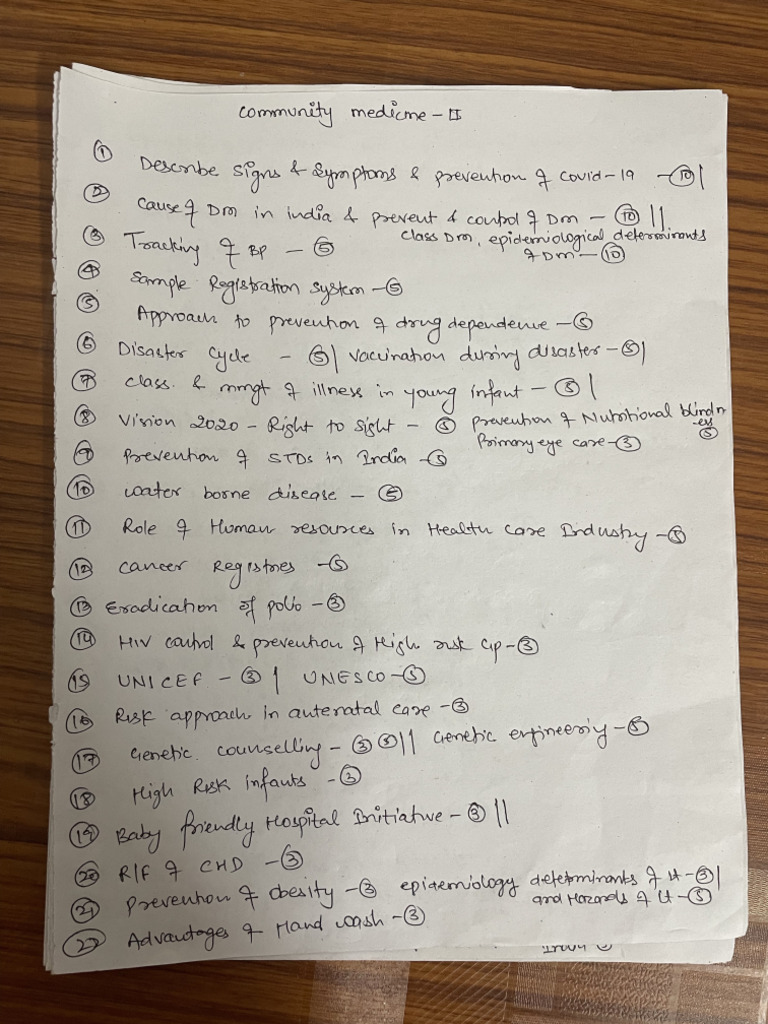 Community medicine - II
① Describe signs & symptoms & prevention of covid-19 - ⑩|
② Cause of Dm in india & prevent & control of Dm - ⑩ ||
class Dm, epidemiological determinants
③ Tracking of BP - ⑤
of Dm - ⑩
④ Sample Registration system - ⑤
⑤ Approach to prevention of drug dependence - ⑤
⑥ Disaster Cycle - ⑤| vaccination during disaster - ⑤|
⑦ class. & mmgt of illness in young infant - ⑤ |
⑧ Vision 2020 - Right to Sight - ⑤ prevention of Nutritional blindn
-ess
⑤
Primary eye care - ③
⑨ Prevention of STDs in India - ⑤
⑩ water borne disease - ⑤
⑪ Role of Human resources in Health care Industry - ⑤
⑫ Cancer Registries - ⑤
⑬ Eradication of polio - ③
⑭ HIV control & prevention of High risk Gp - ③
⑮ UNICEF - ③ | UNESCO - ⑤
⑯ Risk approach in antenatal care - ③
⑰ Genetic counselling - ③ ⑤ || Genetic engineering - ⑤
⑱ High Risk infants - ③
⑲ Baby friendly Hospital Initiative - ③ ||
⑳ R/F of CHD - ③
㉑ Prevention of obesity - ③ epidemiology determinants of it - ③|
and Hazards of it - ⑤
㉒ Advantages of Hand wash - ③